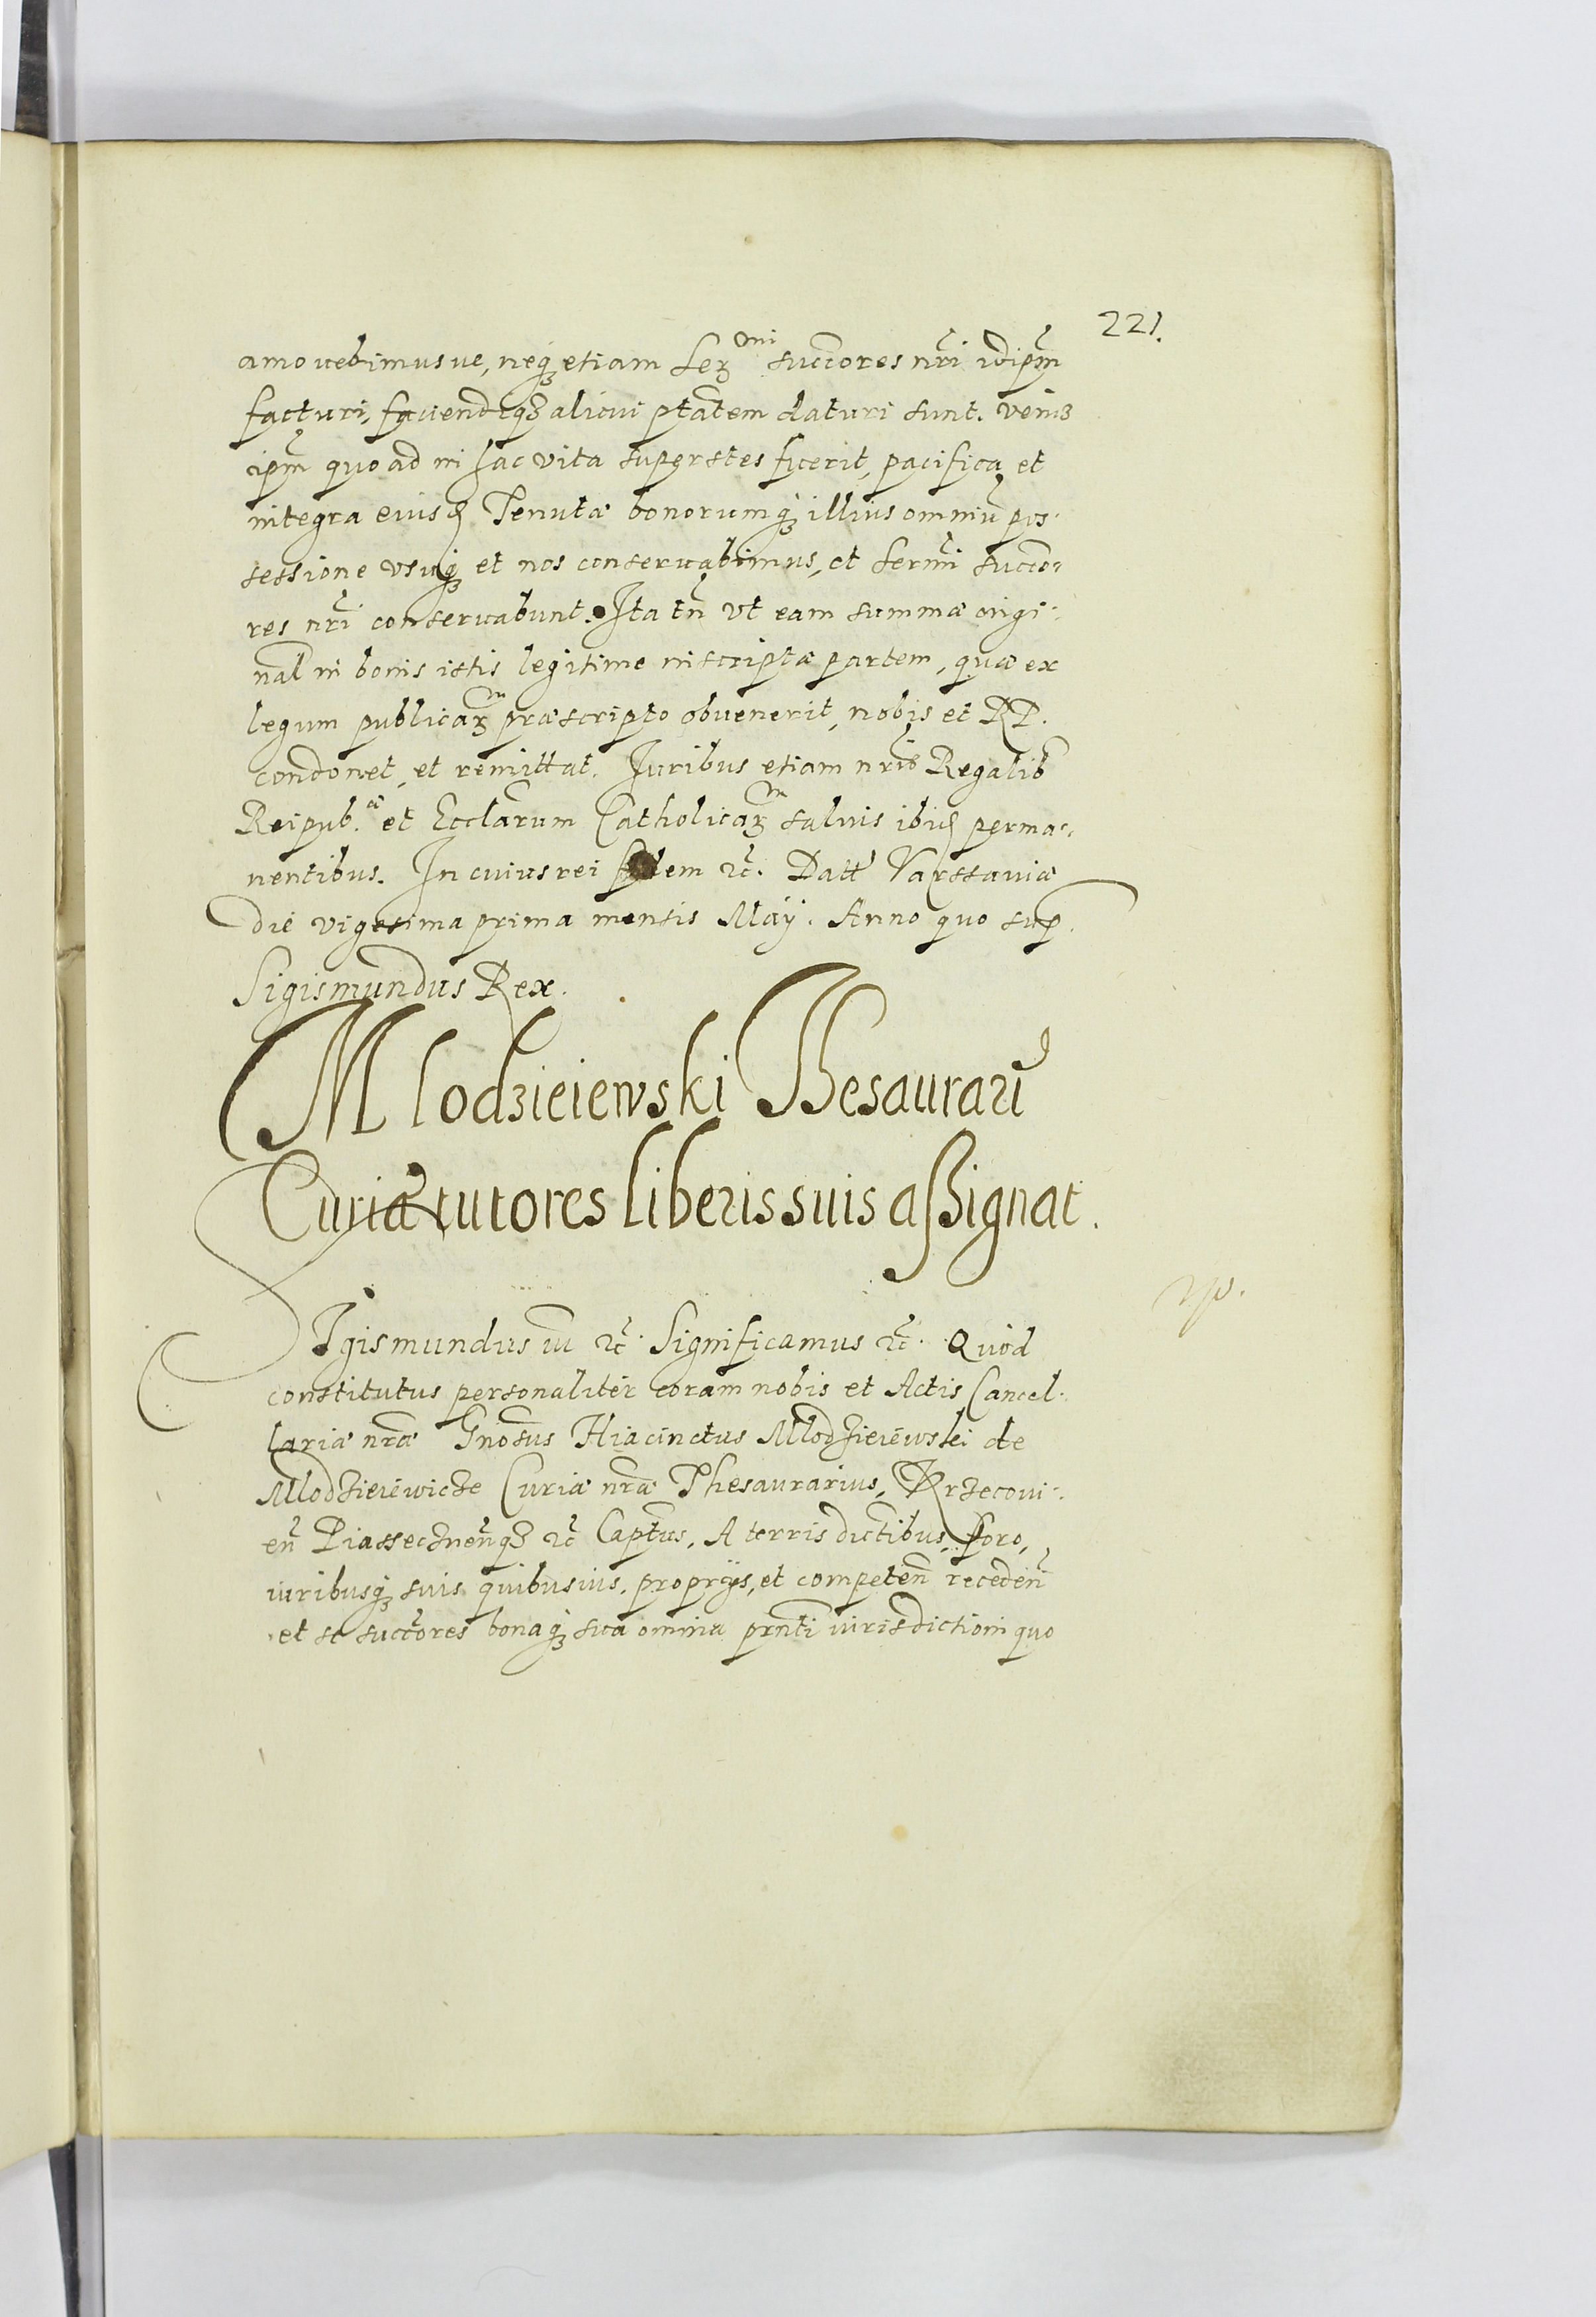 221.
amouebimusue, neqꝫ etiam Serꝫmi succores nr̃i idipm̃
facturi, faciendiqꝫ alicui ptãtem daturi sunt. Verũ
ipm̃ quoad in hac vita superstes fuerit, pacifica et
integra eiusd Tenutæ bonorumqꝫ illius omniũ pos-
sessione vsuqꝫ et nos conseruabimus, et Sermi succo-
res nr̃i conseruabunt. Ita tñ vt eam summæ origi-
nal in bonis istis legitime inscriptæ partem, quæ ex
legum publicarꝫ præscripto obuenerit, nobis et RP.
condonet, et remittat. Iuribus etiam nris Regalib
Reipub.æ et Ecclarum Catholicarꝫ saluis ibid perma-
nentibus. In cuius rei fidem ꝛc̃. Datt Varssauiæ
die vigesima prima mensis Maÿ. Anno quo sup.
Sigismundus Rex.
Mlodzieiewski Thesaurarũ
Curiæ tutores liberis suis assignat.
Sigismundus iii ꝛc̃. Significamus ꝛc̃. Quod
constitutus personaliter coram nobis et Actis Cancel-
lariæ nræ Gnosus Hiacinctus Mlodzieiewski de
Mlodzieiewicze Curiæ nræ Thesaurarius, Krzecoui-
eñ Piasseczneñqꝫ ꝛc̃ Captus. A terris dictibus, foro,
iuribusqꝫ suis quibusuis, proprijs, et competeñ recedeñ
et se succores bonaqꝫ sua omnia prnti iurisdictioni quo